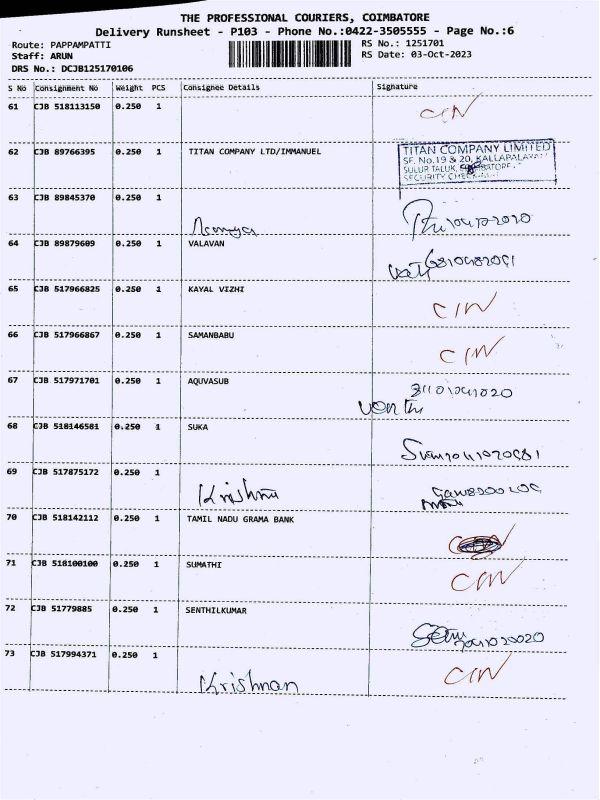 THE PROFESSIONAL COURIERS, COIMBATORE
Delivery Runsheet - P103 - Phone No.:0422-3505555 - Page No.:6
Route: PAPPAMPATTI RS No.: 1251701
Staff: ARUN RS Date: 03-Oct-2023
DRS No.: DCJB125170106
S No Consignment No Weight PCS Consignee Details Signature
61 CJB 518113150 0.250 1 CIN
62 CJB 89766395 0.250 1 TITAN COMPANY LTD/IMMANUEL
TITAN COMPANY LIMITED
SF. No.19 & 20, KALLAPALAYAM
SULUR TALUK,
SECURITY
63 CJB 89845370 0.250 1
64 CJB 89879609 0.250 1 VALAVAN
65 CJB 517966825 0.250 1 KAYAL VIZHI CIN
66 CJB 517966867 0.250 1 SAMANBABU CIN
67 CJB 517971701 0.250 1 AQUVASUB
68 CJB 518146581 0.250 1 SUKA
69 CJB 517875172 0.250 1 Krishna
70 CJB 518142112 0.250 1 TAMIL NADU GRAMA BANK
71 CJB 518100100 0.250 1 SUMATHI CIN
72 CJB 51779885 0.250 1 SENTHILKUMAR
73 CJB 517994371 0.250 1 Krishnan CIN